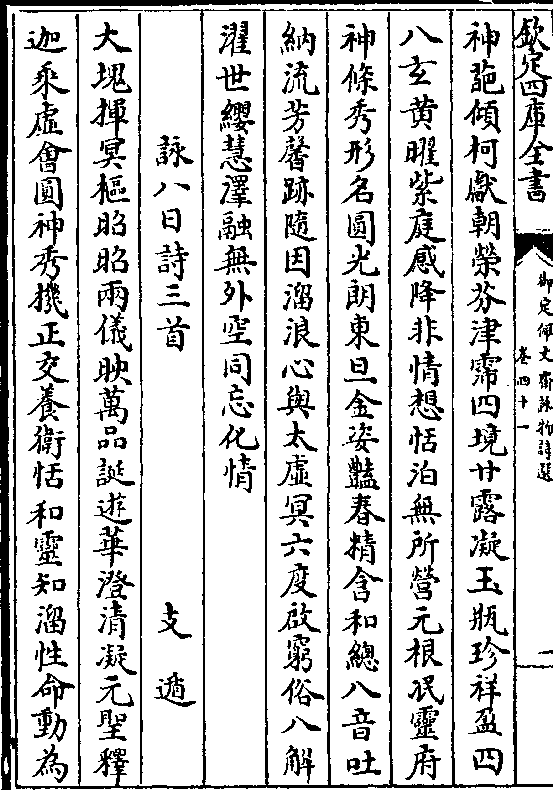 欽定四庫全書
御定佩文齋詠物詩選
卷四十一
一
神葩傾柯獻朝榮芬津霈四境甘露凝玉瓶珍祥盈四
八玄黄曜紫庭感降非情想恬泊無所營元根泯靈府
神條秀形名圓光朗東旦金姿豔春精含和總八音吐
納流芳馨跡隨因溜浪心與太虛冥六度啟窮俗八解
濯世纓慧澤融無外空同忘化情
詠八日詩三首
支遁
大塊揮冥樞昭昭兩儀映萬品誕遊華澄清凝元聖釋
迦乘虛會圓神秀機正交養衛恬和靈知溜性命動為